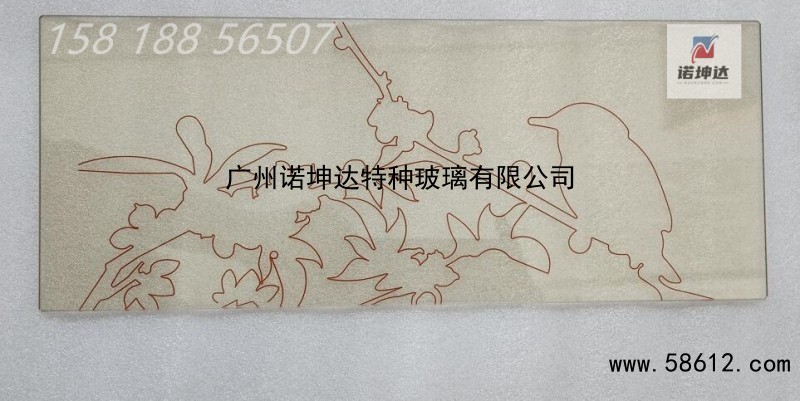 158 188 56507
诺坤达
广州诺坤达特种玻璃有限公司
www.58612.com